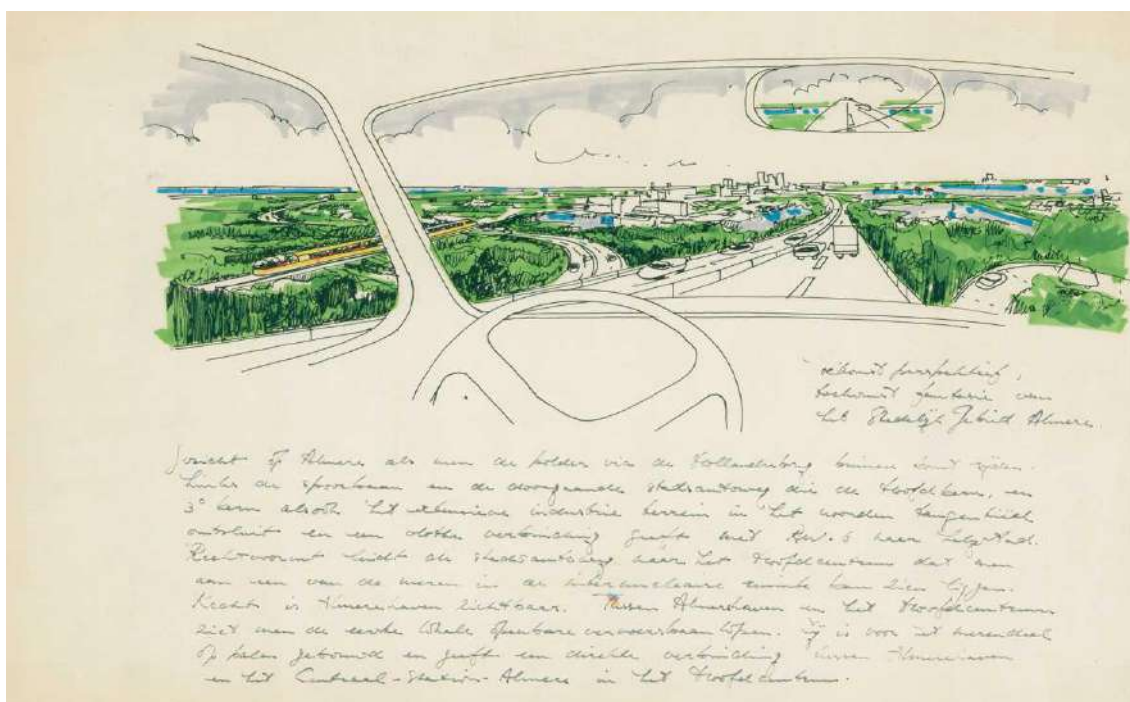 perspektief,
toekomst fantasie van
het Stedelijk Gebied Almere.
Gezicht op Almere als men de polder via de Hollandsebrug binnen komt rijden.
Links de spoorbaan en de doorgaande stadsautoweg die de Hoofdkern, en
3e kern alsook het extensieve industrie terrein in het noorden tangentieel
ontsluit en een vlotte verbinding geeft met naar Lelystad.
Rechtvooruit leidt de stadsautoweg naar het Hoofdcentrum dat men
aan een van de meren in de internucleaire ruimte kan zien liggen.
Rechts is Almerehaven zichtbaar. Tussen Almerehaven en het Hoofdcentrum
ziet men de eerste lokale openbare vervoersbaan lopen. Zij is voor het merendeel
op palen gebouwd en geeft een direkte verbinding tussen Almerehaven
en het Centraal-station-Almere in het Hoofdcentrum.